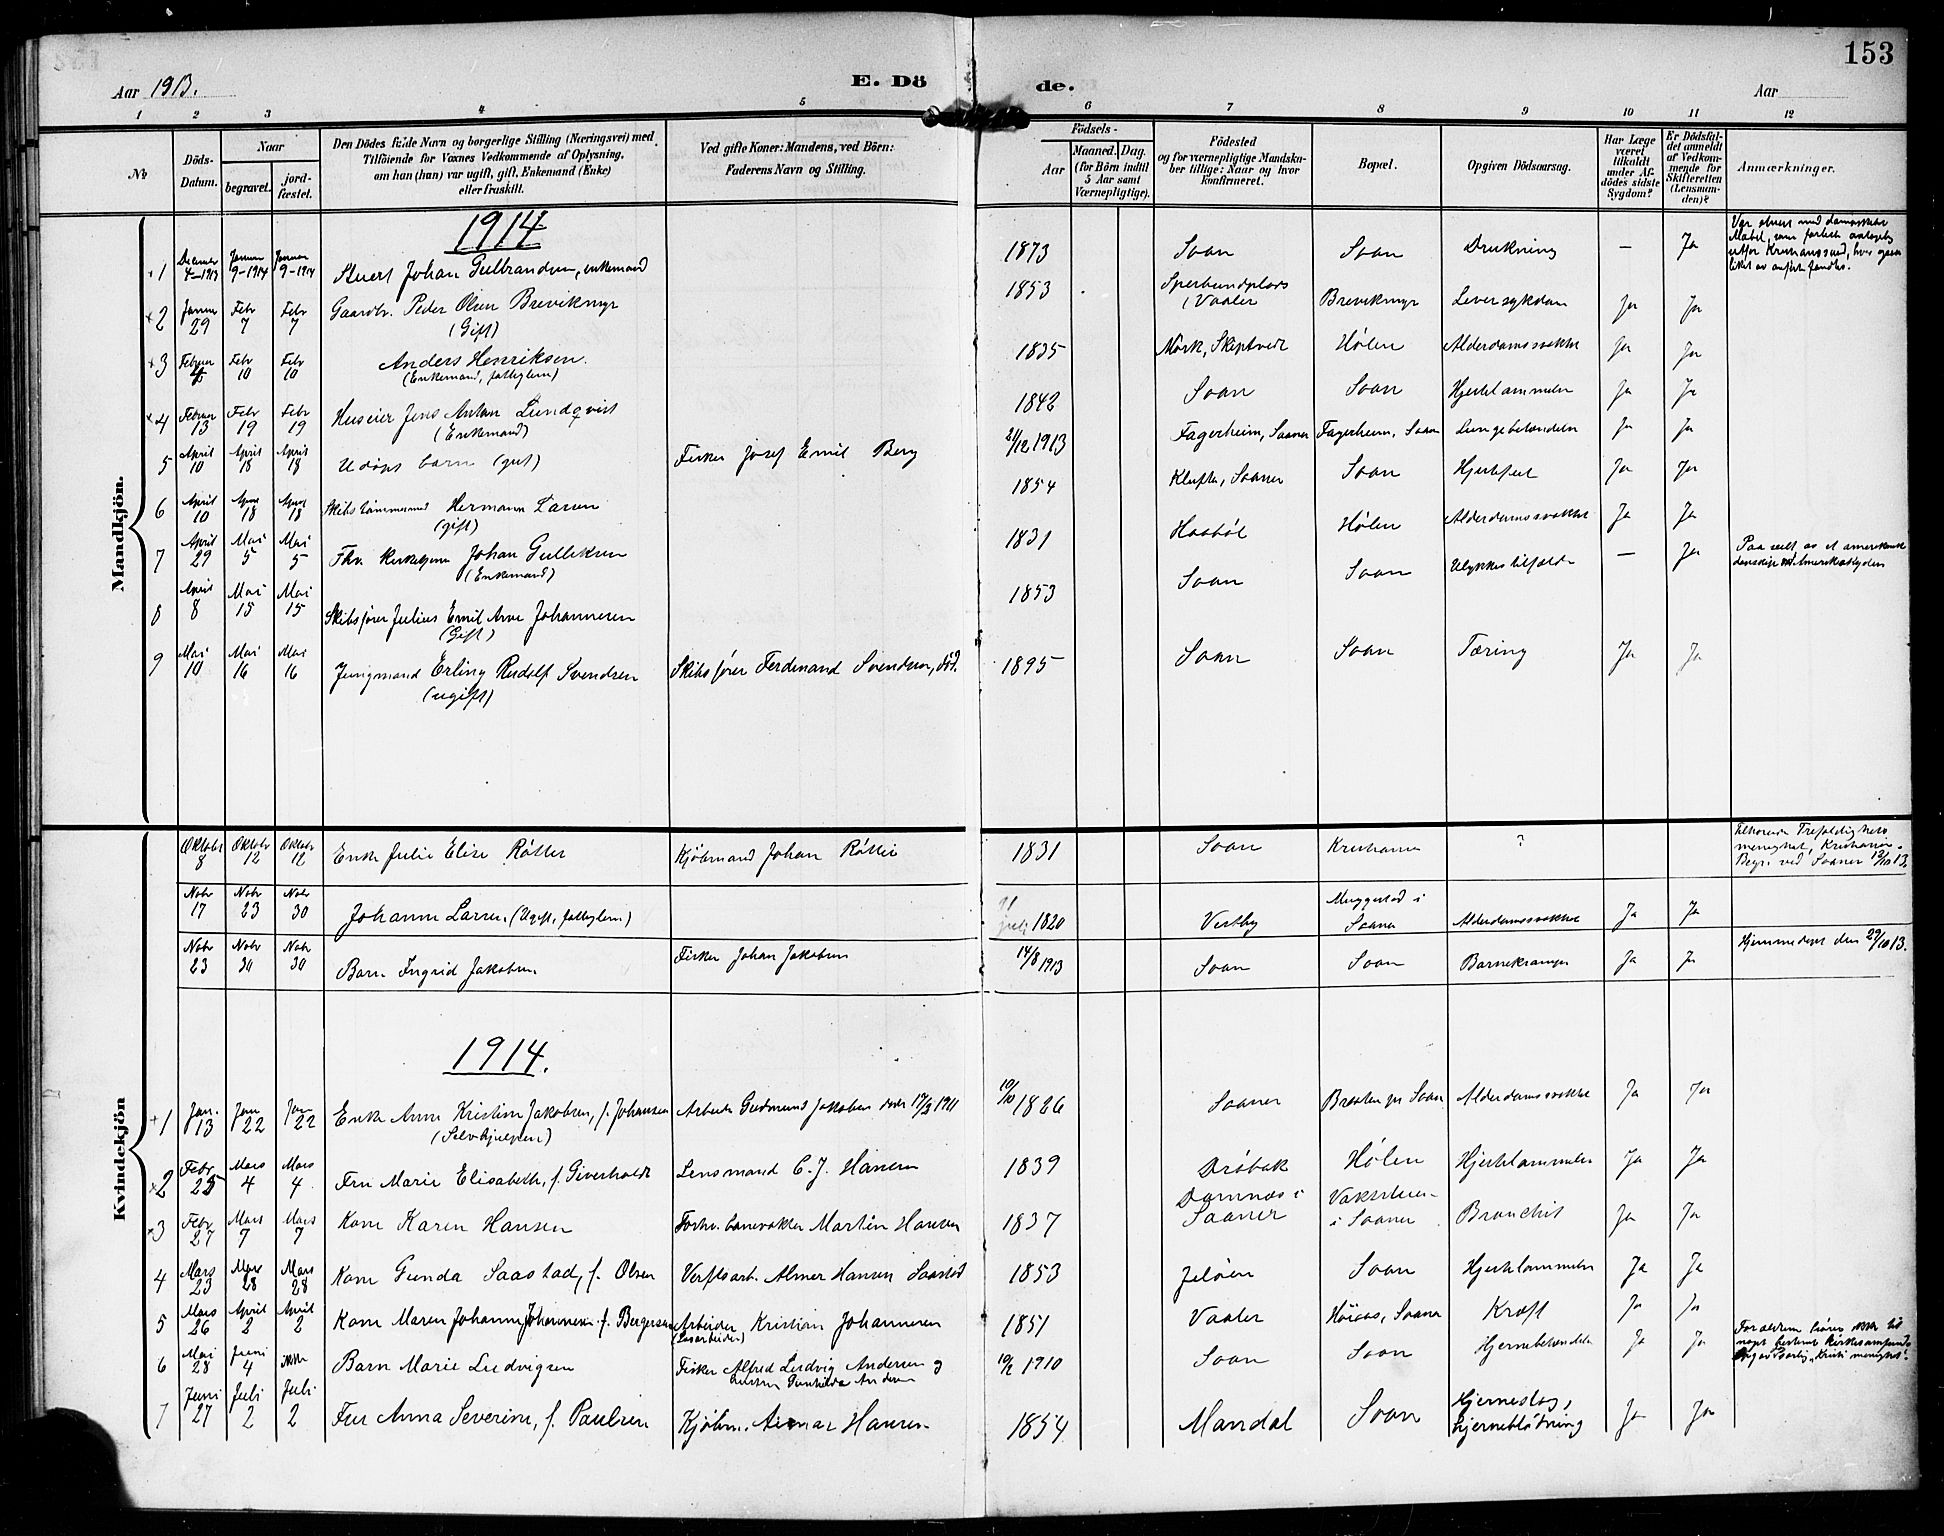 153
Aar 1913.
E. Dö
de.
Aar
1 2 3 4 5 6 7 8 9 10 11 12
No
Döds-Datum.
Naar
begravet.
jordfæstet.
Den Dödes fulde Navn og borgerlige Stilling (Næringsvei) med
Tilföiende for Voxnes Vedkommende af Oplysning,
om han (hun) var ugift, gift, Enkemand (Enke)
eller fraskilt.
Ved gifte Koner: Mandens, ved Börn:
Faderens Navn og Stilling.
Födsels-
Aar
Maaned. Dag.
(for Börn indtil
5 Aar samt
Værnepligtige).
Födested
og for værnepligtige Mandska-
ber tillige: Naar og hvor
konfirmeret.
Bopæl.
Opgiven Dödsaarsag.
Har Læge
været
tilkaldt
under Af-
dödes sidste
Sygdom?
Er Dödsfal-
det anmeldt
af Vedkom-
mende for
Skifteretten
(Lensman-
den)?
Anmærkninger.
Mandkjön.
1914
1 4-1913 Januar 9-1914 Januar 9-1914 Stuert Johan Gulbrandsen, enkemand 1873 Soon Soon Drukning — Ja
2 Januar 29 Febr 7 Febr 7 Gaardbr. Peder Olsen Brevikmyr (Gift) 1853 Vaaler Brevikmyr Leversykdom Ja Ja
3 Februar Febr 10 Febr 10 Anders Henriksen. (Enkemand, fattiglem) 1835 Mørk, Skiptvedt Hølen Alderdomssvakhet Ja Ja
4 Februar 13 Febr 19 Febr 19 Huseier Jens Anton Lundqvist (Enkemand) 1842 Soon Soon Hjertelammelse Ja Ja
5 April 10 April 18 April 18 Udøpt barn (gut) Fisker Josef Emil Berg 21/12 1913 Fagerheim, Saaner Fagerheim, Soon Lungebetændelse Ja Ja
6 April 10 April 18 April 18 Skibstømmermand Hermann Larsen (gift) 1854 Klufta, Saaner Soon Hjertefeil Ja Ja
7 April 29 Mai 5 Mai 5 Fhv. Johan Gulliksen (Enkemand) 1831 Haabøl Hølen Alderdomssvakhet Ja Ja
8 April 8 Mai 15 Mai 15 Skibsfører Julius Emil Arne Johannesen (Gift) 1853 Soon Soon Ulykkestilfælde — Ja
9 Mai 10 Mai 16 Mai 16 Jungmand Erling Rudolf Svendsen (ugift) Skibsfører Ferdinand Svendsen, død. 1895 Soon Soon Tæring Ja Ja
Kvindekjön
Oktobr 8 Oktobr 12 Oktobr 12 Enke Julie Elise Røtter Kjøbmand Johan 1831 Soon Kristiania ? Trefoldigheds menighet, Kristiania. Begr. ved Saaner 12/10 13.
Nobr 17 Nobr 23 Nobr 30 Johanne Larsen (Ugift, fattiglem) 1820 Vestby Muggestad i Saaner Alderdomssvakhet Ja Ja
Nobr 23 Nobr 30 Nobr 30 Barn Ingrid Jakobsen Fisker Johan Jakobsen 14/8 1913 Soon Soon Barnekramper Ja Ja Hjemmedøpt den 29/10 13.
1914.
1 Jan. 13 Jan 22 Jan 22 Enke Anne Kristine Jakobsen, f. Johansen (Selvhjulpen) Arbeider Gudmund Jakobsen 1911 10/10 1826 Saaner Soon Alderdomssvakhet Ja Ja
2 Febr 25 Mars 4 Mars 4 Fru Marie Elisabeth, f. Giverholdt Lensmand C. J. Hansen 1839 Drøbak Hølen Hjertelammelse Ja Ja
3 Febr 27 Mars 7 Mars 7 Kone Karen Hansen Forhv. banevokter Martin Hansen 1837 Damnæs i Saaner i Saaner Bronchit Ja Ja
4 Mars 23 Mars 28 Mars 28 Kone Gunda Saastad, f. Olsen Verftsarb. Almer Hansen Saastad 1853 Jeløen Soon Hjertelammelse Ja Ja
5 Mars 26 April 2 April 2 Kone Maren Johanne Johannesen f. Bergersen Arbeider Kristian Johannesen 1851 Vaaler Høiaas, Saaner Kræft Ja Ja
6 Mai 28 Juni 4 Barn Marie Ludvigsen Fisker Alfred Ludvig Andersen og Gunhilda Andersen 10/2 1910 Soon Soon Hjernebetændelse Ja Ja
7 Juni 27 Juli 2 Juli 2 Fru Anna Severine, f. Paulsen Kjøbm. Hansen. 1854 Mandal Soon Hjerneslag, hjerneblødning Ja Ja